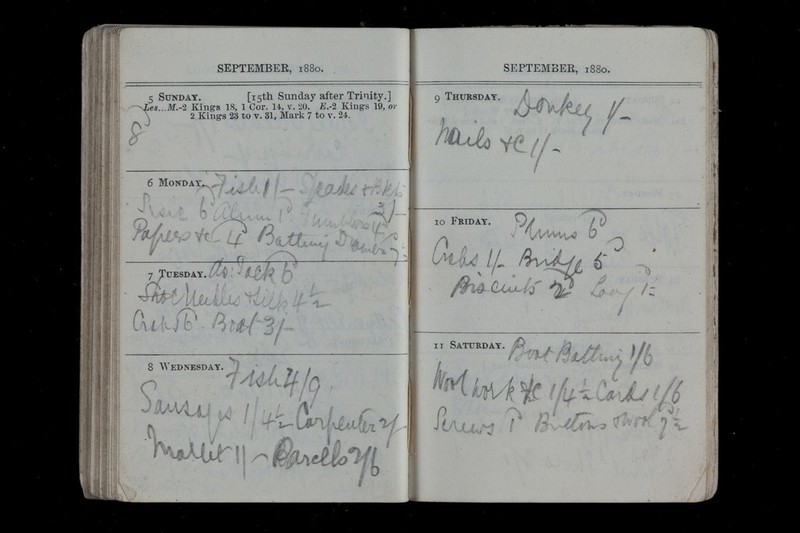 SEPTEMBER, 1880.
5 SUNDAY. [15th Sunday after Trinity.]
Les...M.-2 Kings 18, 1 Cor. 14, v. 20. E.-2 Kings 19, or
2 Kings 23 to v. 31, Mark 7 to v. 24.
6 MONDAY. Fish 1/-
6 Alum 1d 3/-
Papers &c 4d Batting
7 TUESDAY. do: Jack 6d
Needles & Silk 4½
Crabs 6d Boat 3/-
8 WEDNESDAY. Fish 4/9.
Sausages 1/4½ Carpenter 2/-
Mallet 1/- Parcells 2/6
SEPTEMBER, 1880.
9 THURSDAY. Donkey 1/-
Nails &c 1/-
10 FRIDAY. Plums 6d
Crabs 1/- Bridge 5d
Biscuits 2d Loaf
11 SATURDAY. Boat 1/6
Wool work &c 1/4½ Cards 1/6
Screws 1d Buttons & Wool 7½